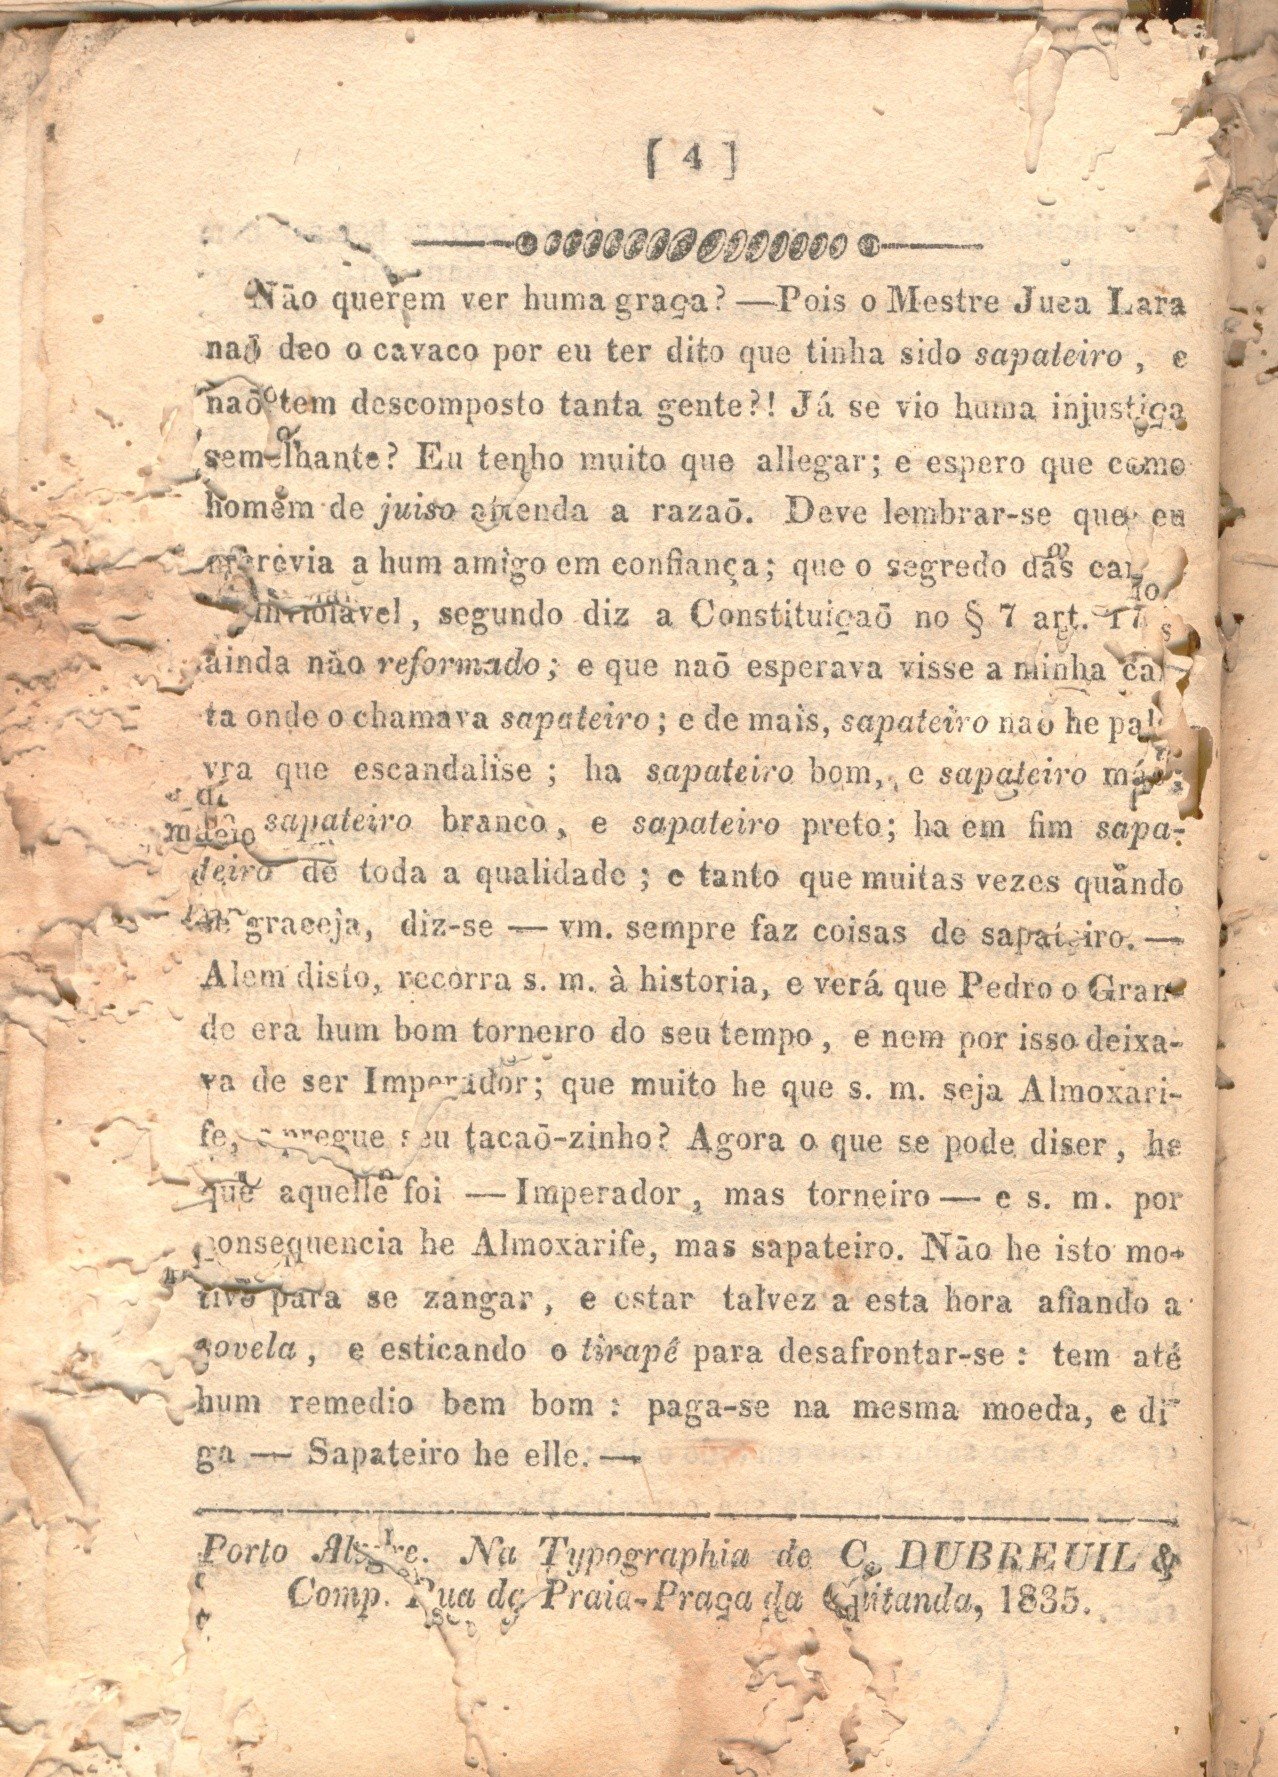 [ 4 ]
Não querem ver huma graça? —Pois o Mestre Juca Lara
naõ deo o cavaco por eu ter dito que tinha sido sapateiro, e
naõ tem descomposto tanta gente?! Já se vio huma injustiça
semelhante? Eu tenho muito que allegar; e espero que como
homem de juiso attenda a razaõ. Deve lembrar-se que eu
escrevia a hum amigo em confiança; que o segredo das
inviolavel, segundo diz a Constituiçaõ no § 7 art.
ainda não reformado; e que naõ esperava visse a minha car-
ta onde o chamava sapateiro; e de mais, sapateiro naõ he pala-
vra que escandalise; ha sapateiro bom, e sapateiro máo;
sapateiro branco, e sapateiro preto; ha em fim sapa-
teiro de toda a qualidade; e tanto que muitas vezes quando
se graceja, diz-se — vm. sempre faz coisas de sapateiro. —
Alem disto, recorra s. m. à historia, e verá que Pedro o Gran-
de era hum bom torneiro do seu tempo, e nem por isso deixa-
va de ser Imperador; que muito he que s. m. seja Almoxari-
fe, e pregue seu tacaõ-zinho? Agora o que se pode diser, he
que aquelle foi — Imperador, mas torneiro — e s. m. por
consequencia he Almoxarife, mas sapateiro. Não he isto mo-
tivo para se zangar, e estar talvez a esta hora afiando a
sovela, e esticando o tirapé para desafrontar-se: tem até
hum remedio bem bom: paga-se na mesma moeda, e di
ga — Sapateiro he elle. —
Porto Alegre. Na Typographia de C. DUBREUIL &
Comp. Rua da Praia-Praça da Quitanda, 1835.